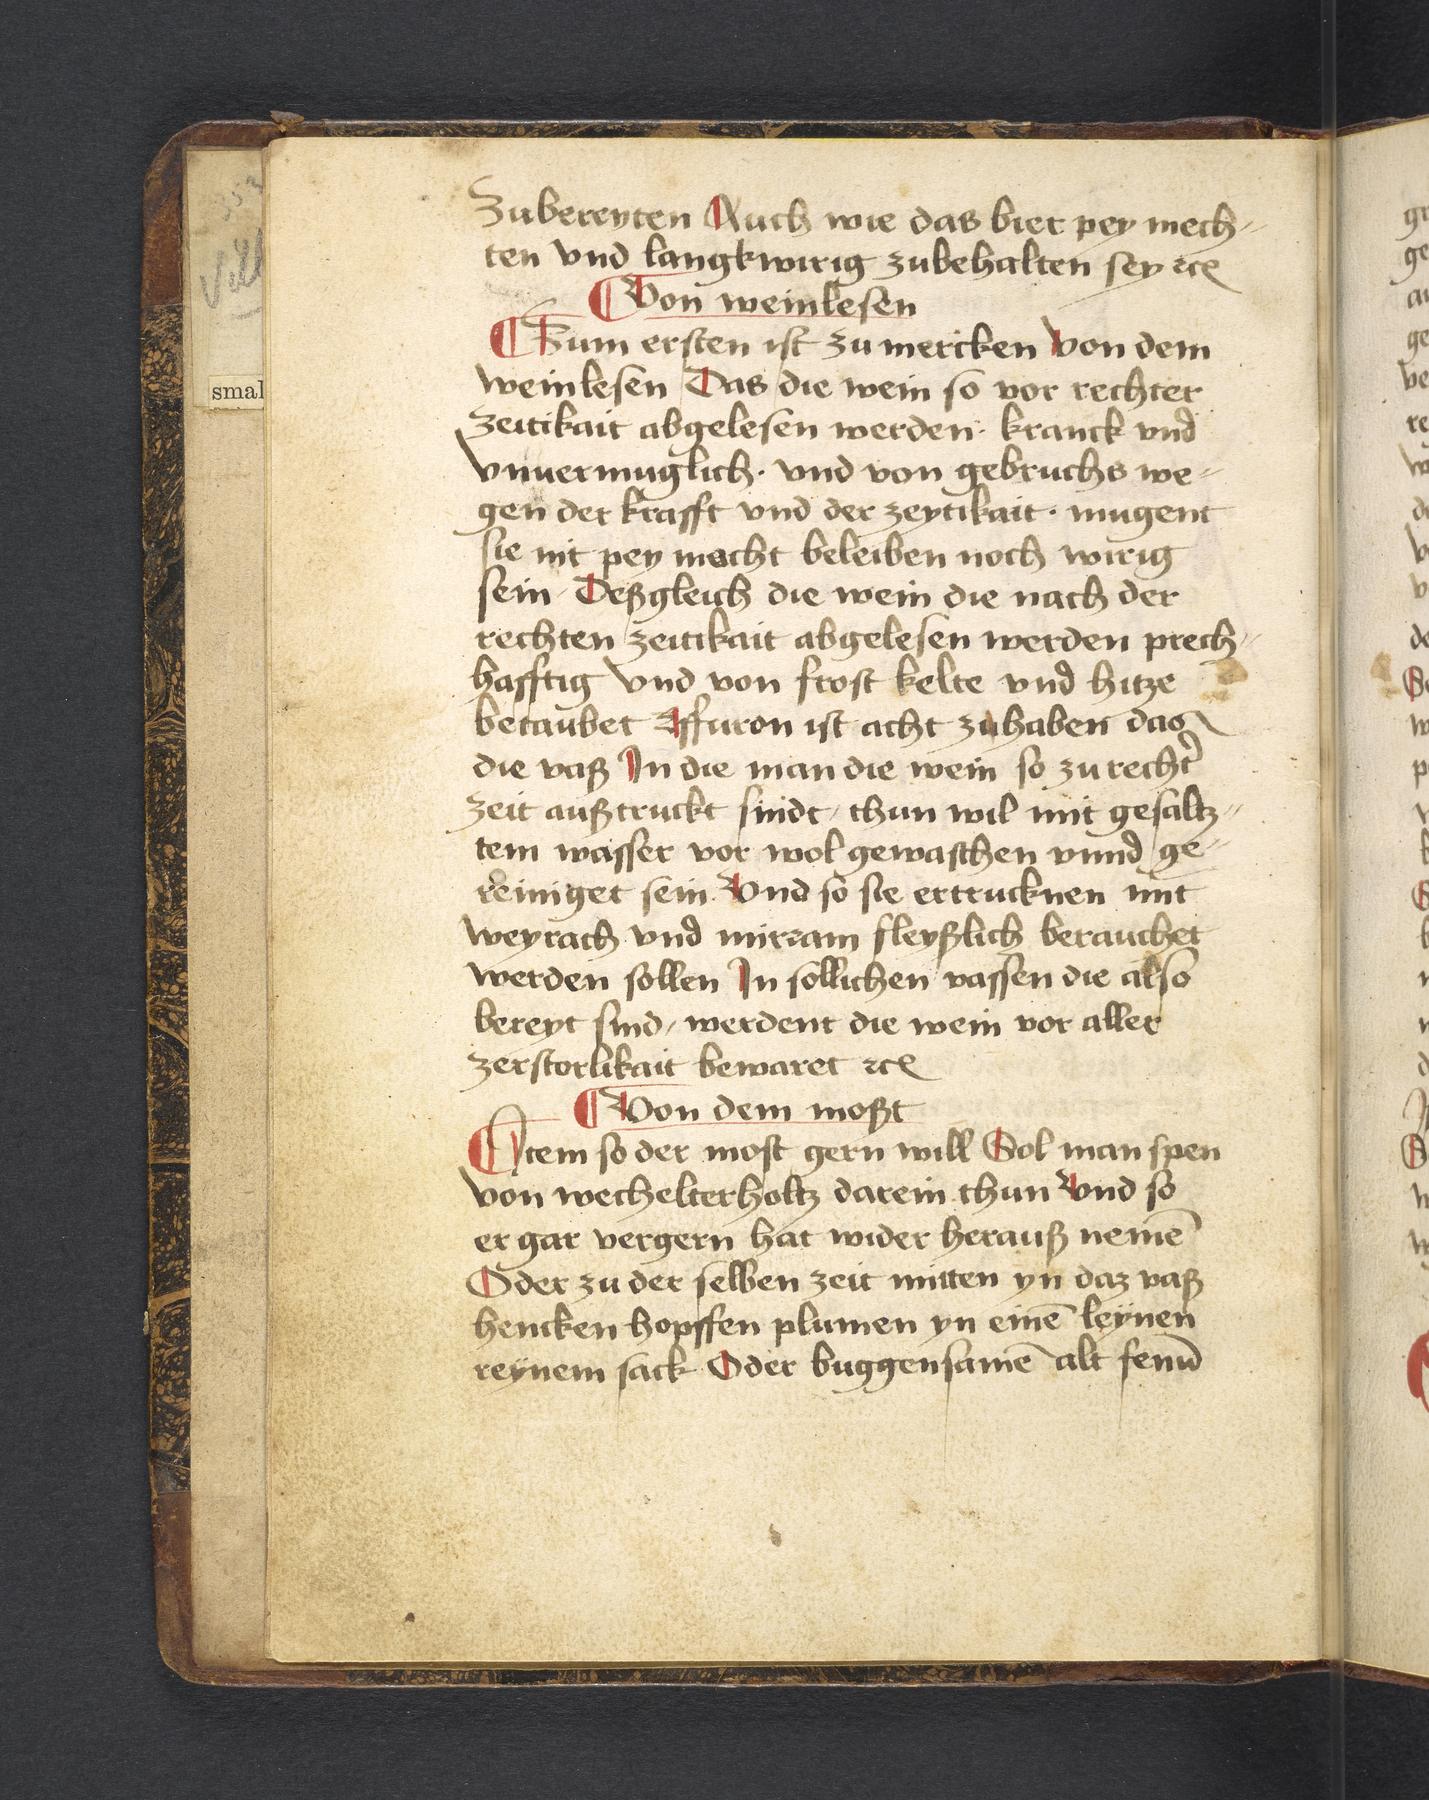 Zubereyten Auch wie das bier pey mech-
ten vnd langkwirig zubehalten sey ꝛcꝭ
Von weinlesen
Zum ersten ist zu mercken Von dem
weinlesen Das die wein so vor rechter
zeitikait abgelesen werden· kranck vnd
vnuermuglich· vnd von gebruchs we-
gen der krafft vnd der zeytikait· mugent
sie nit pey macht beleiben noch wirig
sein· Deßgleich die wein die nach der
rechten zeitikait abgelesen werden prech-
hafftig vnd von frost kelte vnd hitze
betaubet Iffuron ist acht zuhaben das
die vaß In die man die wein so zu rechter
zeit außtruckt sindt / thun wil mit gesaltz-
tem wasser vor wol gewaschen vnnd ge-
reiniget sein· Vnd so sie ertrucknen mit
weyrach vnd mirram fleyßlich berauchet
werden sollen In sollichen vassen die also
bereyt sind / werdent die wein vor aller
zerstorlikait bewaret ꝛcꝭ
Von dem moßt
Item so der most gern will Sol man spen
von wechelterholtz darein thun Vnd so
er gar vergern hat wider herauß nemē
Oder zu der selben zeit mitten yn daz vaß
hencken hopffen plumen yn einē leynen
reynem sack Oder buggensamē alt
smal
353